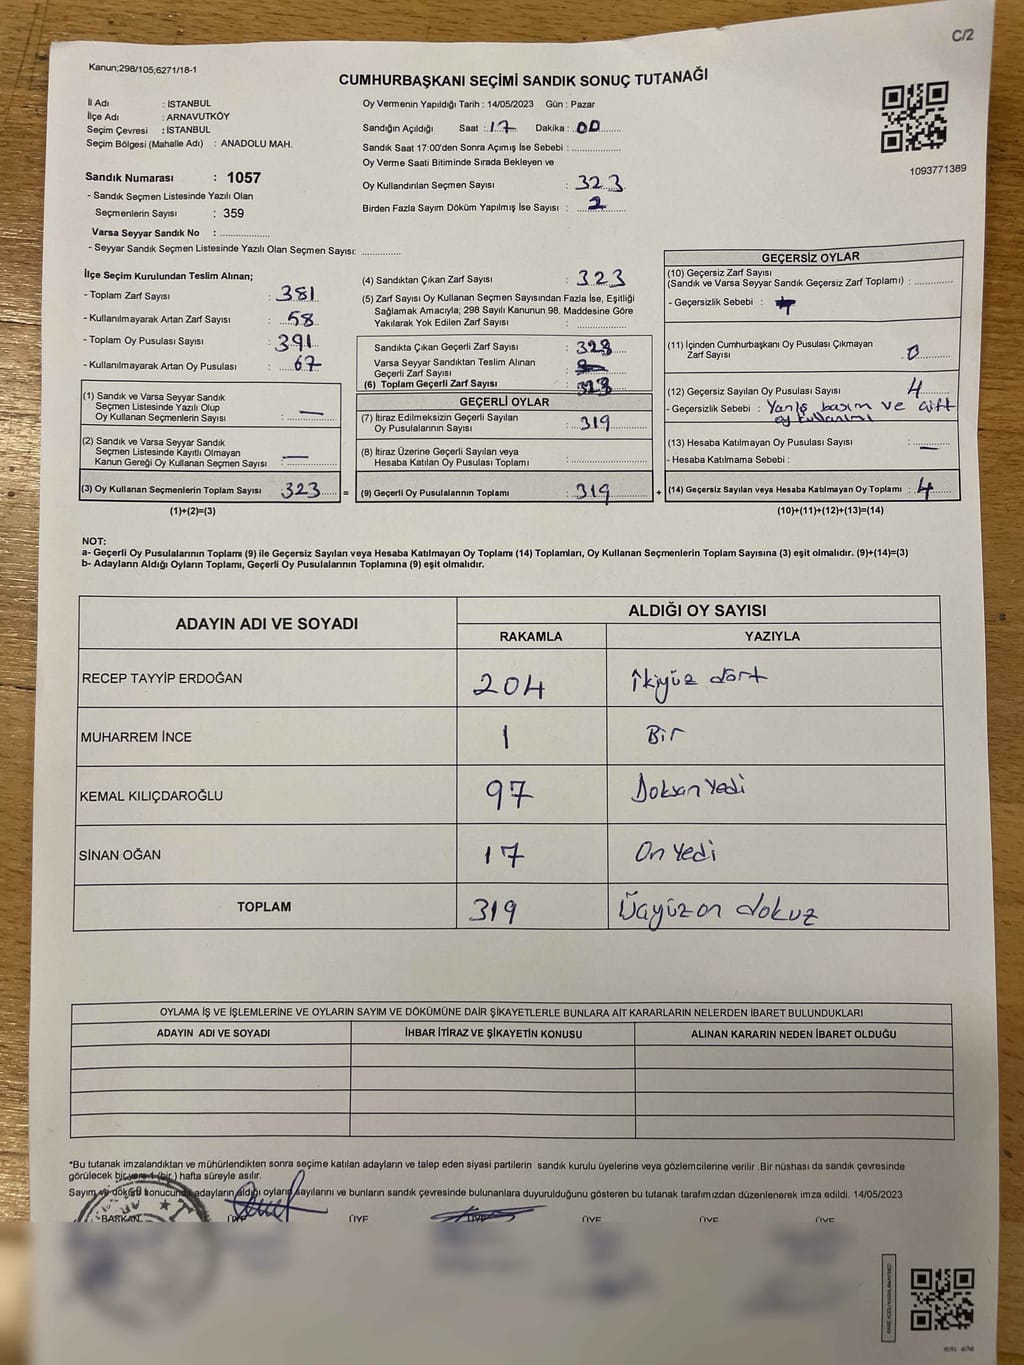 C/2
Kanun;298/105;6271/18-1
CUMHURBAŞKANI SEÇİMİ SANDIK SONUÇ TUTANAĞI
İl Adı : İSTANBUL
İlçe Adı : ARNAVUTKÖY
Seçim Çevresi : İSTANBUL
Seçim Bölgesi (Mahalle Adı) : ANADOLU MAH.
Sandık Numarası : 1057
- Sandık Seçmen Listesinde Yazılı Olan
Seçmenlerin Sayısı : 359
Varsa Seyyar Sandık No : ..............
- Seyyar Sandık Seçmen Listesinde Yazılı Olan Seçmen Sayısı: ............
Oy Vermenin Yapıldığı Tarih : 14/05/2023 Gün : Pazar
Sandığın Açıldığı Saat : 17 Dakika : 00
Sandık Saat 17:00'den Sonra Açımış İse Sebebi : ..............
Oy Verme Saati Bitiminde Sırada Bekleyen ve
Oy Kullandırılan Seçmen Sayısı : 323
Birden Fazla Sayım Döküm Yapılmış İse Sayısı : 2
1093771389
İlçe Seçim Kurulundan Teslim Alınan;
- Toplam Zarf Sayısı : 381
- Kullanılmayarak Artan Zarf Sayısı : 58
- Toplam Oy Pusulası Sayısı : 391
- Kullanılmayarak Artan Oy Pusulası : 67
(1) Sandık ve Varsa Seyyar Sandık
Seçmen Listesinde Yazılı Olup
Oy Kullanan Seçmenlerin Sayısı : —
(2) Sandık ve Varsa Seyyar Sandık
Seçmen Listesinde Kayıtlı Olmayan
Kanun Gereği Oy Kullanan Seçmen Sayısı : —
(3) Oy Kullanan Seçmenlerin Toplam Sayısı 323 =
(1)+(2)=(3)
(4) Sandıktan Çıkan Zarf Sayısı : 323
(5) Zarf Sayısı Oy Kullanan Seçmen Sayısından Fazla İse, Eşitliği
Sağlamak Amacıyla; 298 Sayılı Kanunun 98. Maddesine Göre
Yakılarak Yok Edilen Zarf Sayısı : ..............
Sandıkta Çıkan Geçerli Zarf Sayısı : 323
Varsa Seyyar Sandıktan Teslim Alınan
Geçerli Zarf Sayısı :
(6) Toplam Geçerli Zarf Sayısı : 323
GEÇERLİ OYLAR
(7) İtiraz Edilmeksizin Geçerli Sayılan
Oy Pusulalarının Sayısı : 319
(8) İtiraz Üzerine Geçerli Sayılan veya
Hesaba Katılan Oy Pusulası Toplamı : ..............
(9) Geçerli Oy Pusulalarının Toplamı : 319 +
GEÇERSİZ OYLAR
(10) Geçersiz Zarf Sayısı
(Sandık ve Varsa Seyyar Sandık Geçersiz Zarf Toplamı) : ............
- Geçersizlik Sebebi :
(11) İçinden Cumhurbaşkanı Oy Pusulası Çıkmayan
Zarf Sayısı : 0
(12) Geçersiz Sayılan Oy Pusulası Sayısı : 4
- Geçersizlik Sebebi : Yanlış basım ve çift
oy kullanımı
(13) Hesaba Katılmayan Oy Pusulası Sayısı : —
- Hesaba Katılmama Sebebi :
(14) Geçersiz Sayılan veya Hesaba Katılmayan Oy Toplamı : 4
(10)+(11)+(12)+(13)=(14)
NOT:
a- Geçerli Oy Pusulalarının Toplamı (9) ile Geçersiz Sayılan veya Hesaba Katılmayan Oy Toplamı (14) Toplamları, Oy Kullanan Seçmenlerin Toplam Sayısına (3) eşit olmalıdır. (9)+(14)=(3)
b- Adayların Aldığı Oyların Toplamı, Geçerli Oy Pusulalarının Toplamına (9) eşit olmalıdır.
ADAYIN ADI VE SOYADI ALDIĞI OY SAYISI
RAKAMLA YAZIYLA
RECEP TAYYİP ERDOĞAN 204 ikiyüz dört
MUHARREM İNCE 1 Bir
KEMAL KILIÇDAROĞLU 97 Doksan Yedi
SİNAN OĞAN 17 On Yedi
TOPLAM 319 Üçyüzon dokuz
OYLAMA İŞ VE İŞLEMLERİNE VE OYLARIN SAYIM VE DÖKÜMÜNE DAİR ŞİKAYETLERLE BUNLARA AİT KARARLARIN NELERDEN İBARET BULUNDUKLARI
ADAYIN ADI VE SOYADI İHBAR İTİRAZ VE ŞİKAYETİN KONUSU ALINAN KARARIN NEDEN İBARET OLDUĞU
*Bu tutanak imzalandıktan ve mühürlendikten sonra seçime katılan adayların ve talep eden siyasi partilerin sandık kurulu üyelerine veya gözlemcilerine verilir .Bir nüshası da sandık çevresinde
görülecek bir yere 1 (bir ) hafta süreyle asılır.
Sayım ve döküm sonucunda adayların aldığı oyların sayılarını ve bunların sandık çevresinde bulunanlara duyurulduğunu gösteren bu tutanak tarafımızdan düzenlenerek imza edildi. 14/05/2023
BAŞKAN ÜYE ÜYE ÜYE ÜYE ÜYE ÜYE